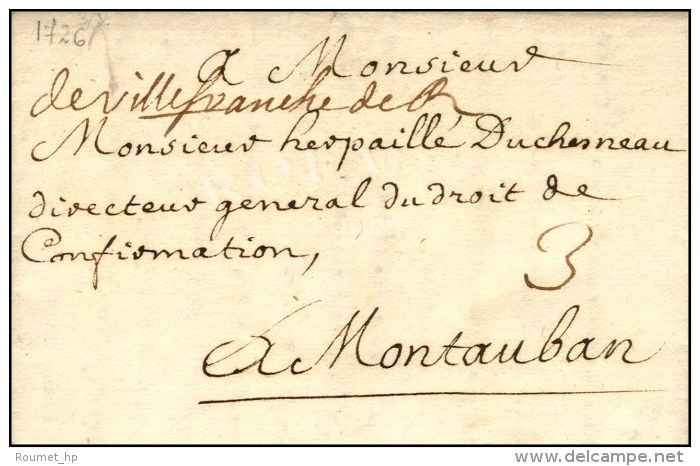 1726
A Monsieur
de villefranche de R
Monsieur herpaillé Duchesneau
directeur general du droit de
Confirmation,
3
A Montauban
Roumet_hp
delcampe.net